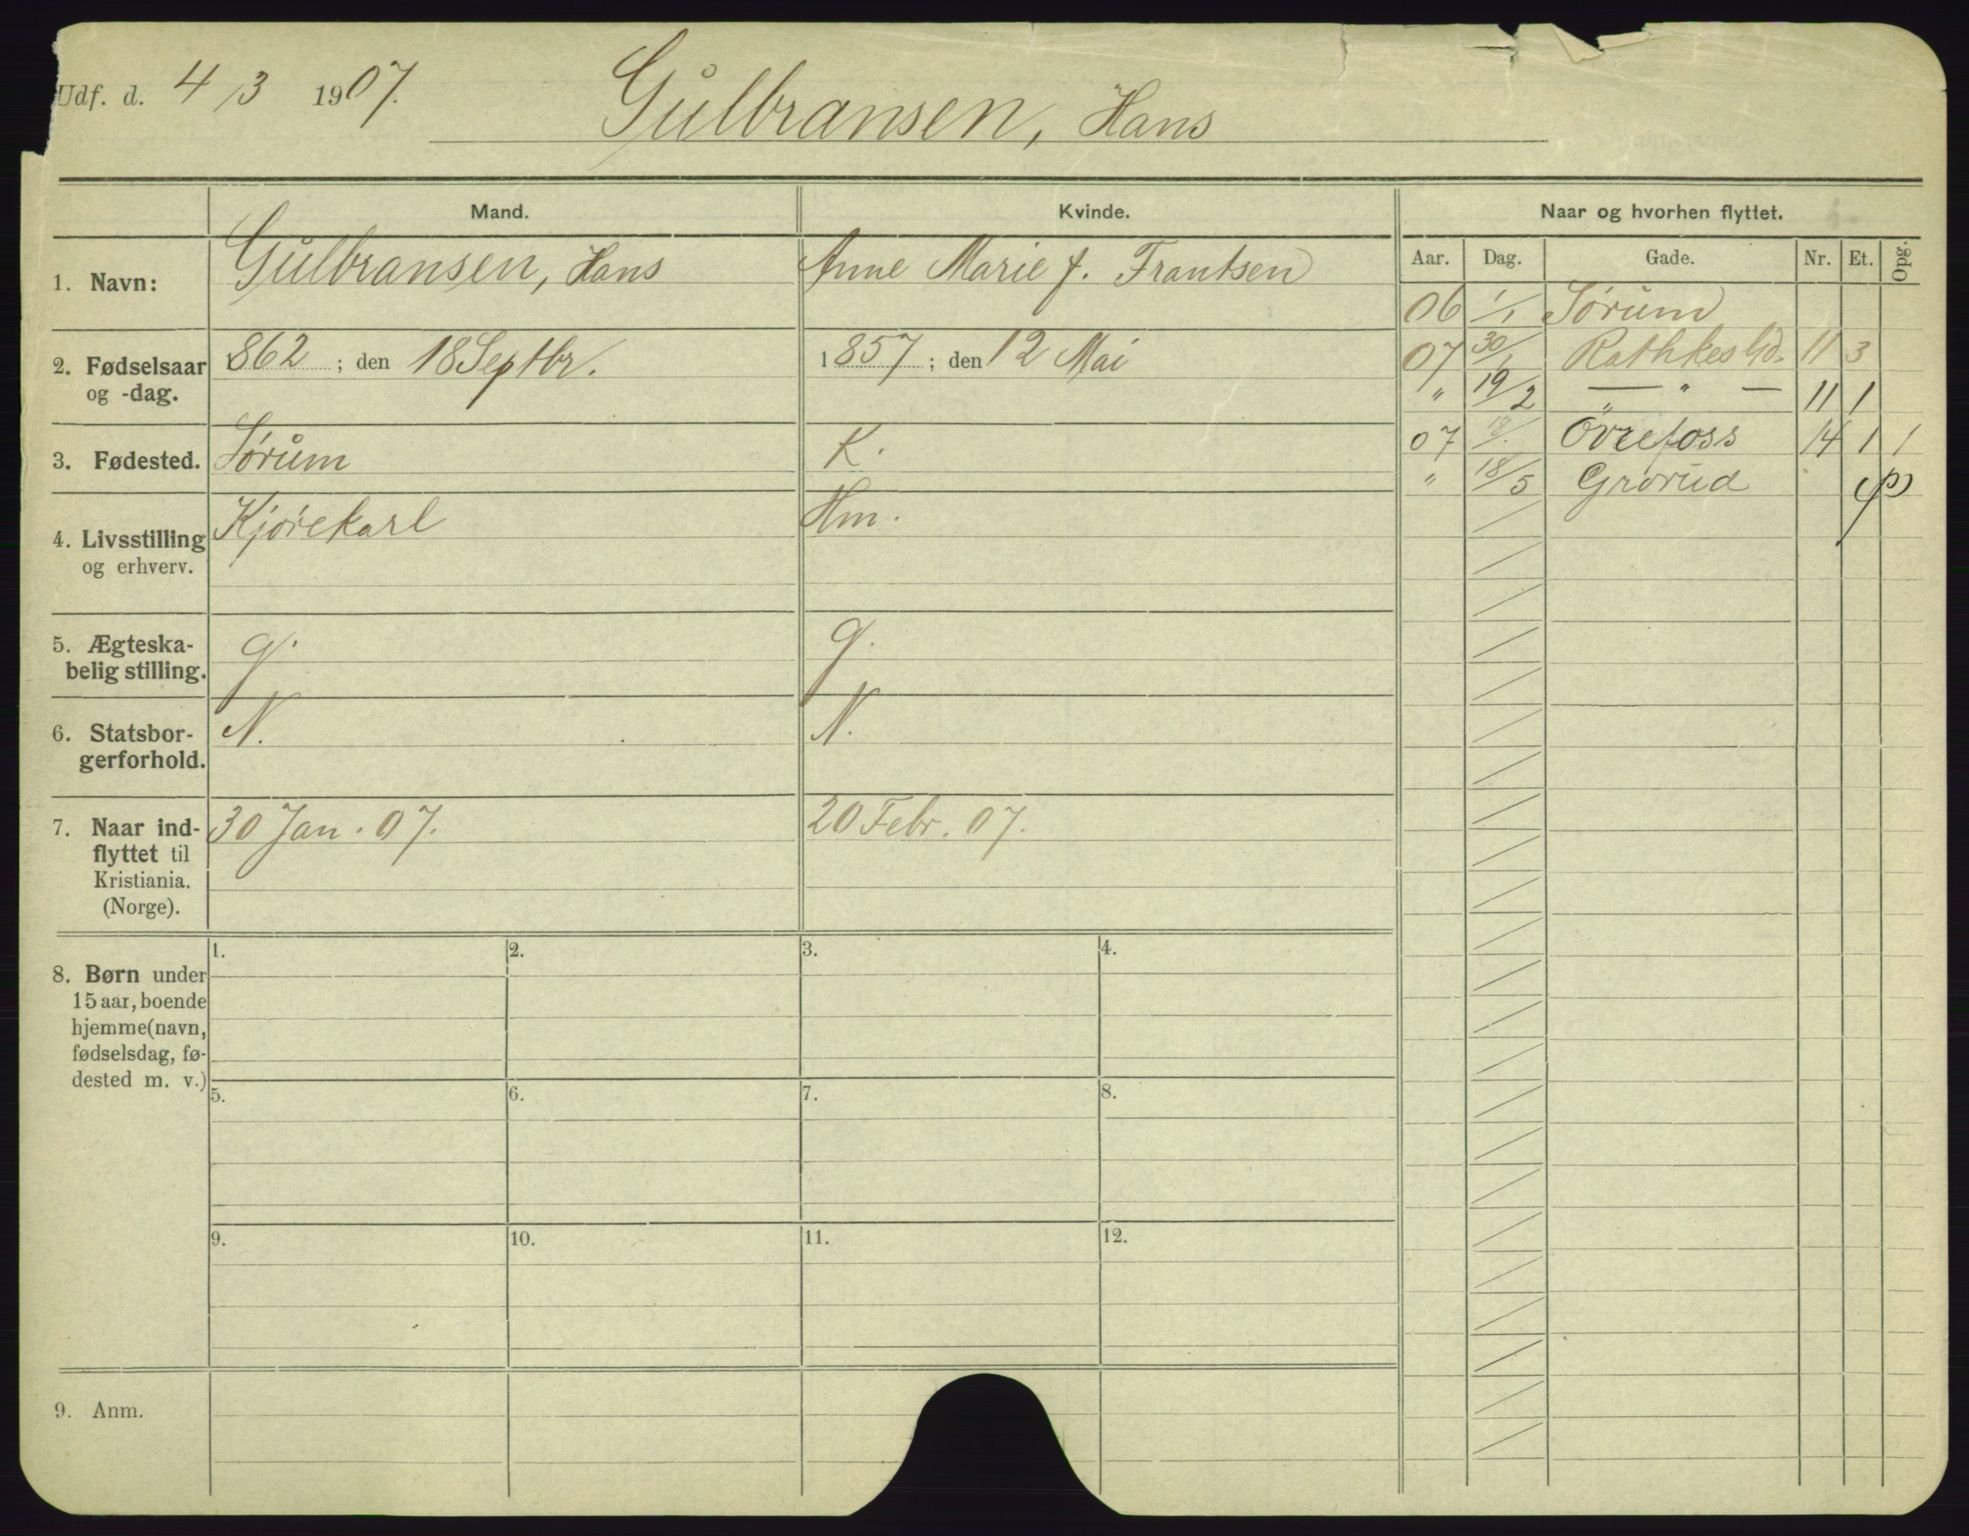 Udf. d. 4/3 1907. Gulbransen, Hans
Mand. Kvinde. Naar og hvorhen flyttet.
Aar. Dag. Gade. Nr. Et. Opg.
1. Navn: Gulbransen, Hans Anne Marie f. Frantsen
2. Fødselsaar og -dag. 1862; den 18 Septbr. 1857; den 12 Mai
3. Fødested. Sørum K.
4. Livsstilling og erhverv. Kjørekarl Hm.
5. Ægteska-
belig stilling. g. g.
6. Statsbor-
gerforhold. N. N.
7. Naar ind-
flyttet til
Kristiania.
(Norge). 30 Jan. 07. 20 Febr. 07.
06 1/1 Sørum
07 30/1 Rathkes Gd. 11 3
" 19/2 — " — 11 1
07 Øvrefoss 14 1 1
" 18/5 Grorud
8. Børn under
15 aar, boende
hjemme (navn,
fødselsdag, fø-
dested m. v.)
1. 2. 3. 4.
5. 6. 7. 8.
9. 10. 11. 12.
9. Anm.